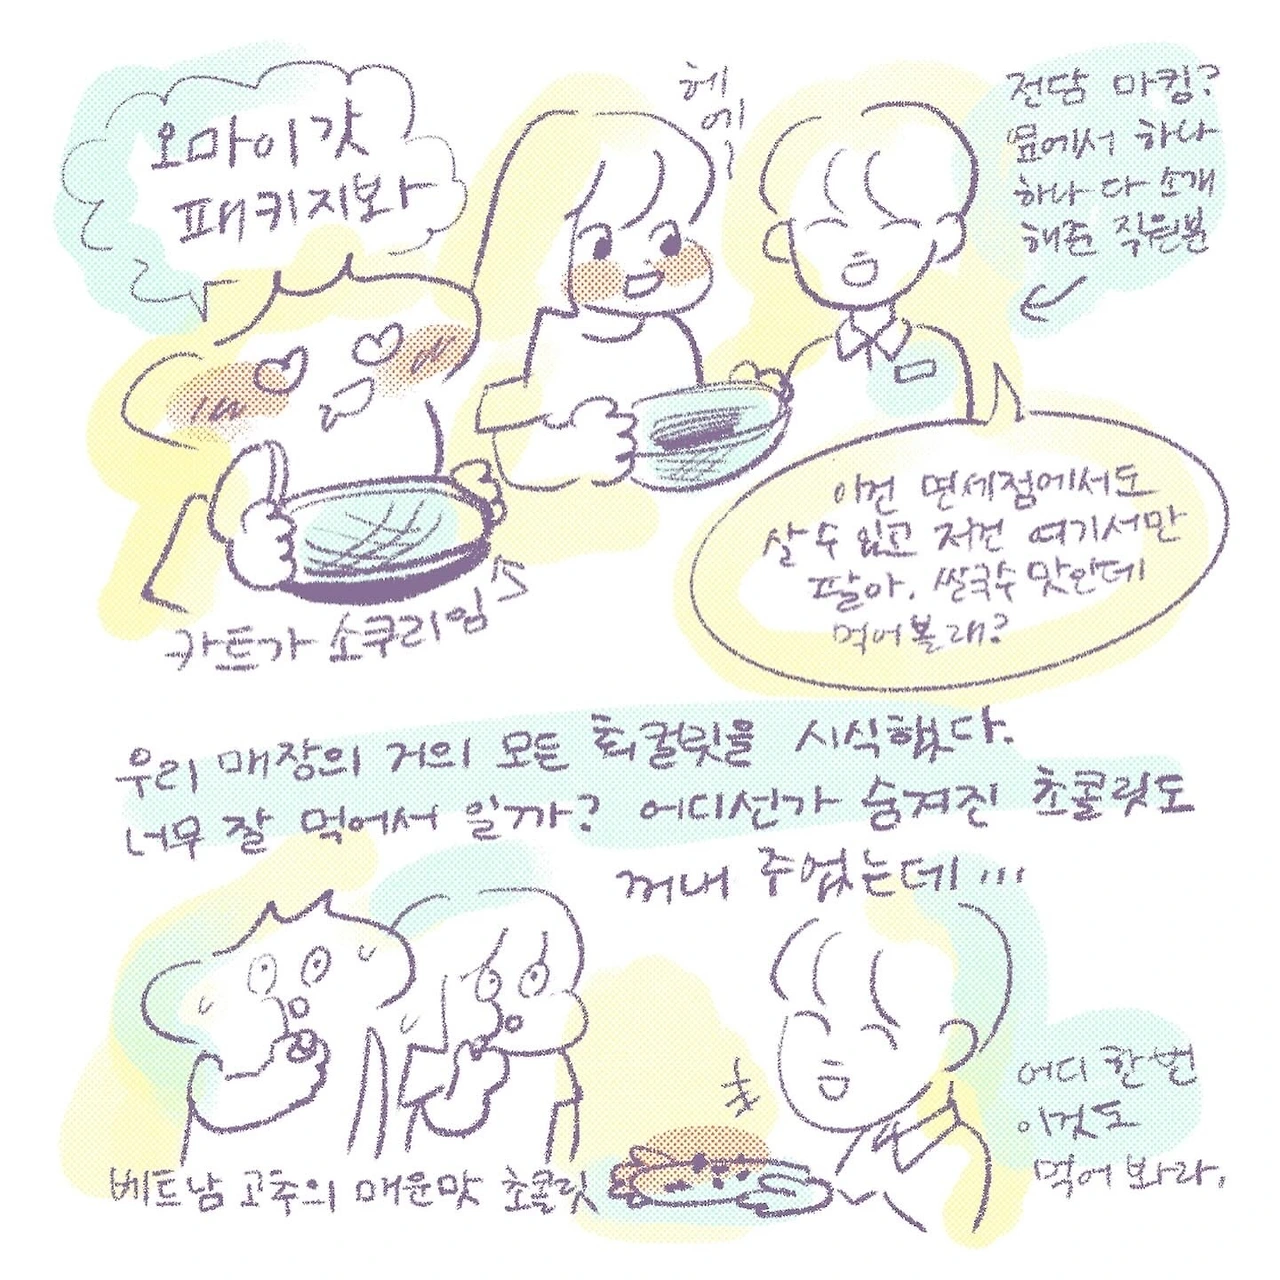 오마이갓
패키지봐
헤
에
전담 마킹?
옆에서 하나
하나 다 소개
해준 직원분
이건 면세점에서도
살 수 있고 저건 여기서만
팔아. 쌀국수 맛인데
먹어볼래?
카트가 소쿠리임
우리 매장의 거의 모든 초컬릿을 시식했다.
너무 잘 먹어서 일까? 어디선가 숨겨진 초콜릿도
꺼내 주었는데...
어디 한번
이것도
먹어 봐라.
베트남 고추의 매운맛 초콜릿